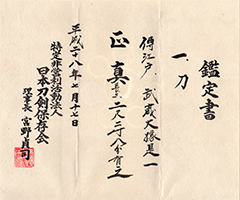 鑑定書
一、刀
傳江戸 武蔵大掾是一
正真 長さ二尺三寸八分有之
平成二十八年七月十七日
特定非営利活動法人
日本刀剣保存会
理事長 宮野貞司